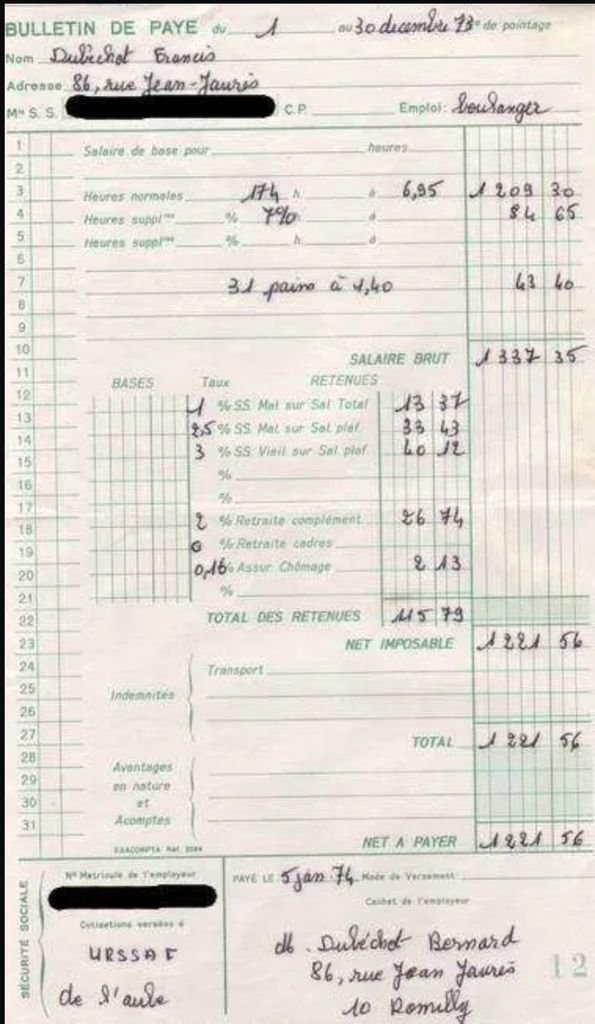 BULLETIN DE PAYE du 1 au 30 decembre 73 de pointage
Nom Dubéchot Francis
Adresse 86, rue Jean-Jaurès
Mle S. S. C.P. Emploi: boulanger
1 Salaire de base pour heures
2
3 Heures normales 174 h à 6,95 1 209 30
4 Heures supplres % 7% à 84 65
5 Heures supplres % h à
6
7 31 pains à 1,40 43 40
8
9
10 SALAIRE BRUT 1 337 35
11 BASES Taux RETENUES
12 1 % SS. Mal sur Sal Total 13 37
13 2,5 % SS. Mal. sur Sal. plaf. 33 43
14 3 % SS. Vieil sur Sal. plaf. 40 12
15 %
16 %
17 2 % Retraite complément. 26 74
18 0 % Retraite cadres
19 0,16 % Assur Chômage 2 13
20 %
21
22 TOTAL DES RETENUES 115 79
23 NET IMPOSABLE 1 221 56
24 Transport
25 Indemnités
26
27 TOTAL 1 221 56
28 Avantages
29 en nature
30 et
31 Acomptes
EXACOMPTA NET A PAYER 1 221 56
SÉCURITÉ SOCIALE
N° Matricule de l'employeur
Cotisations versées à
URSSAF
de l'aube
PAYÉ LE 5 jan 74 Mode de Versement
Cachet de l'employeur
Dubéchot Bernard
86, rue Jean Jaurès
10 Romilly
12